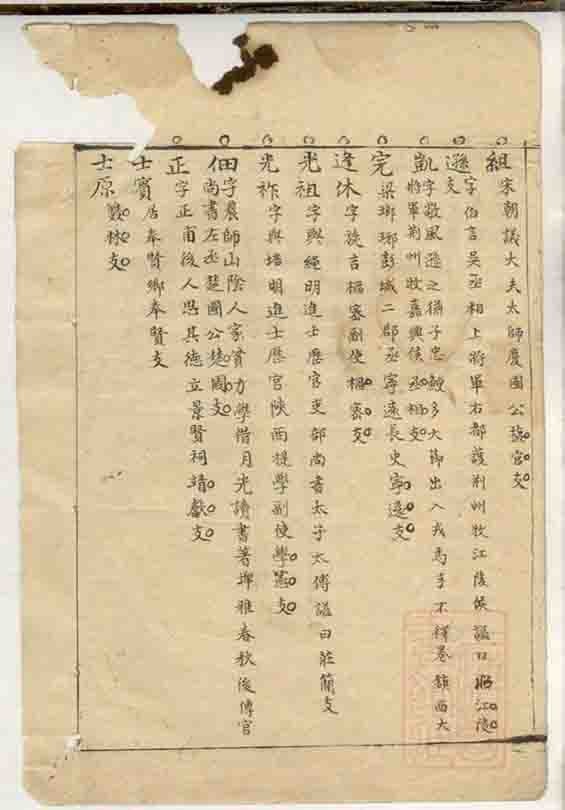 組 宋朝議大夫太師慶國公
遜 字伯言吳丞相上將軍右都護荊州牧江陵侯諡曰昭江陵支
凱 字敬風遜之族子忠鯁多大節出入戎馬手不釋卷鎮西大
將軍荊州牧嘉興侯丞相支
完 梁瑯琊彭城二郡丞寧遠長史寧遠支
逢休 字旋吉樞密副使樞密支
光祖 字與繩明進士歷官吏部尚書太子太傅諡曰莊簡支
光祚 字與培明進士歷官陝西提學副使學憲支
佃 字農師山陰人家貧力學借月光讀書著埤雅春秋後傳官
尚書左丞楚國公楚國支
正 字正甫後人思其德立景賢祠靖獻支
士賓 居奉賢鄉奉賢支
士原 林支